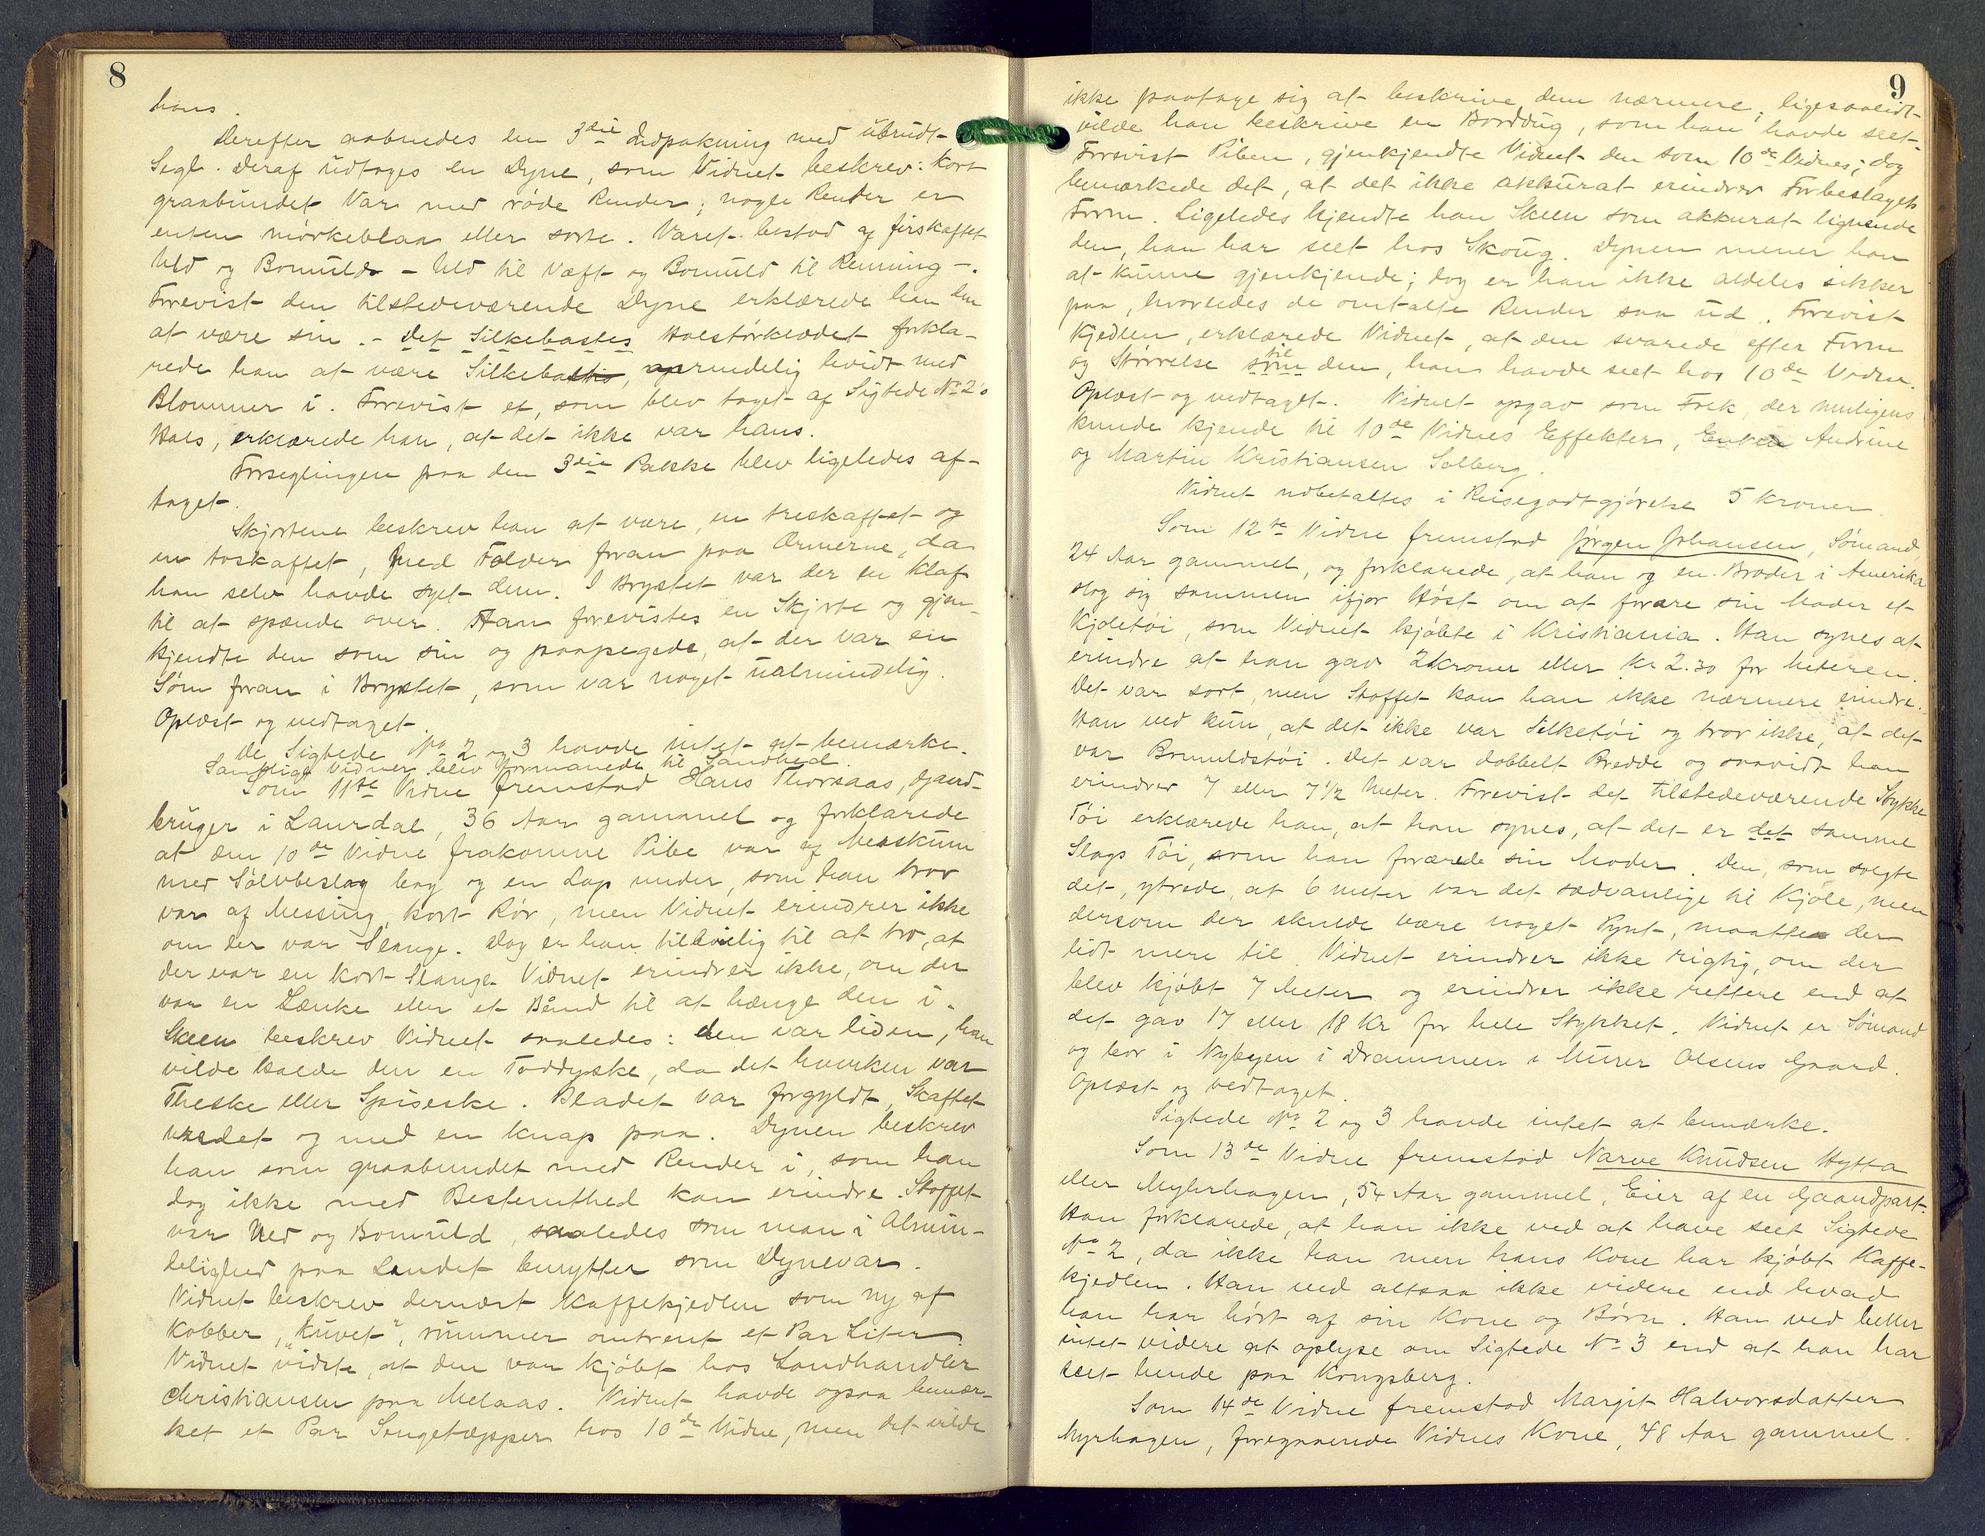 8
hans.
Derefter aabnedes den 3die Indpakning med übrudt
Segl. Deraf üdtoges en Dyne, som Vidnet beskrev: kort
graabündet Var med røde Render; nogle Render er
enten mørkeblaa eller sorte. Varet bestod af firskaftet
Uld og Bomuld - Uld til Væft og Bomuld til Renning -.
Forevist den tilstedeværende Dyne erklærede han den
at være sin. - Det Silkebastes Halstørklædet forkla-
rede han at være Silkebastis, oprindelig hvidt med
Blommer i. Forevist et, som blev taget af Sigtede No 2's
Hals, erklærede han, at det ikke var hans.
Forseglingen paa den 3die Pakke blev ligeledes af-
taget.
Skjortene beskrev han at være, en treskaftet og
en toskaftet, med Folder foran paa Ærmerne, da
han selv havde syet dem. I Brystet var der en Klaf
til at spænde over. Han forevistes en Skjorte og gjen-
kjendte den som sin og paapegede, at der var en
Søm foran i Brystet, som var noget üalmindelig.
Oplæst og vedtaget.
De Sigtede No 2 og 3 havde intet at bemærke.
Samtlige Vidner blev formanede til Sandhed.
Som 11te Vidne fremstod Hans Thorsaas, Gaard-
bruger i Laurdal, 36 Aar gammel og forklarede
at den 10de Vidne frakomne Pibe var af Merskum
med Sølvbeslag lag og en Lap under, som han tror
var af Messing, kort Rør, men Vidnet erindrer ikke
om der var Slange. Dog er han tilbøielig til at tro, at
der var en kort Slange. Vidnet erindrer ikke, om der
var en Lænke eller et Bånd til at hænge den i.
Skeen beskrev Vidnet saaledes: den var liden, han
vilde kalde den en Toddyske, da det hverken var
Theske eller Spiseske. Bladet var forgyldt, Skaftet
vredet og med en Knap paa. Dynen beskrev
han som graabundet med Render i, som han
dog ikke med Bestemthed kan erindre. Stoffet
var Uld og Bomuld, saaledes som man i Almin-
delighed paa Landet benytter som Dynevar.
Vidnet beskrev dernæst Kaffekjedlen som ny af
Kobber, "kuvet", rümmer omtrent et Par Liter.
Vidnet vidste, at den var kjøbt hos Landhandler
Christiansen paa Melaas. Vidnet havde ogsaa bemær-
ket et Par Sengetæpper hos 10de Vidne, men det vilde
9
ikke paatage sig at beskrive dem nærmere; ligesaalidt
vilde han beskrive en Borddug, som han havde seet.
Forevist Piben, gjenkjendte Vidnet den som 10de Vidnes; dog
bemærkede det, at det ikke akkurat erindrer Forbeslagets
Form. Ligeledes kjendte han Skeen som akkurat lignende
den, han har seet hos Skoug. Dynen mener han
at kunne gjenkjende; dog er han ikke aldeles sikker
paa, hvorledes de omtalte Render saa üd. Forevist
Kjedlen, erklærede Vidnet, at den svarede efter Form
og Størrelse til den, han havde seet hos 10de Vidne.
Oplæst og vedtaget. Vidnet opgav som Folk, der muligens
kunde kjende til 10de Vidnes Effekter, Enken Andrine
og Martin Kristiansen Solberg.
Vidnet udbetaltes i Reisegodtgjørelse 5 kroner
Som 12te Vidne fremstod Jørgen Johansen, Sømand,
24 Aar gammel, og forklarede, at han og en Broder i Amerika
slog sig sammen ifjor Høst om at forære sin Moder et
Kjoletøi, som Vidnet kjøbte i Kristiania. Han synes at
erindre at han gav 2 kroner eller kr 2.30 for Meteren.
Det var sort, men Stoffet kan han ikke nærmere erindre.
Han ved kün, at det ikke var Silketøi og tror ikke, at det
var Bomuldstøi. Det var dobbelt Bredde og saavidt han
erindrer 7 eller 7½ Meter. Forevist det tilstedeværende Stykke
Tøi erklærede han, at han synes, at det er det samme
Slags Tøi, som han forærede sin Moder. Den, som solgte
det, ytrede, at 6 meter var det sædvanlige til Kjole, men
dersom der skulde være noget Pynt, maatte der
lidt mere til. Vidnet erindrer ikke rigtig, om der
blev kjøbt 7 Meter og erindrer ikke rettere end at
det gav 17 eller 18 Kr for hele Stykket. Vidnet er Sømand
og bor i Nybyen i Drammen i Murer Olsens Gaard.
Oplæst og vedtaget.
Sigtede No 2 og 3 havde intet at bemærke.
Som 13de Vidne fremstod Narve Knudsen Hytta
eller Myhrhagen, 54 Aar gammel, Eier af en Gaardpart.
Han forklarede, at han ikke ved at have seet Sigtede
No 2, da ikke han men hans Kone har kjøbt Kaffe-
kjedlen. Han ved altsaa ikke videre end hvad
han har hørt af sin Kone og Børn. Han ved heller
intet videre at oplyse om Sigtede No 3 end at han har
seet hende paa Kongsberg.
Som 14de Vidne fremstod Margit Halvorsdatter
Myrhagen, foregaaende Vidnes Kone, 48 Aar gammel.